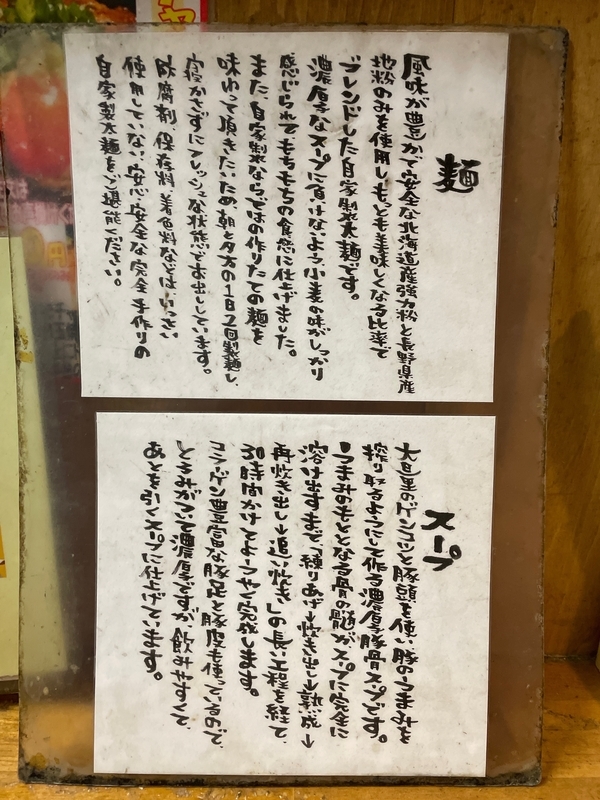 麺
風味が豊かで安全な北海道産強力粉と長野県産
地粉のみを使用しもっとも美味しくなる比率で
ブレンドした自家製太麺です。
濃厚なスープに負けないよう、小麦の味がしっかり
感じられてもちもちの食感に仕上げました。
また、自家製ならではの作りたての麺を
味わって頂きたいため、朝と夕方の1日2回製麺し、
寝かさずにフレッシュな状態でお出ししています。
防腐剤、保存料、着色料などはいっさい
使用していない、安心、安全な完全手作りの
自家製太麺をご堪能ください。
スープ
大量のゲンコツと豚頭を使い、豚のうまみを
搾り取るようにして作る濃厚豚骨スープです。
うまみのもととなる骨の髄がスープに完全に
溶け出すまで「練りあげ→炊き出し→熟成→
再炊き出し→追い炊き」の長い工程を経て、
30時間かけてようやく完成します。
コラーゲン豊富な豚足と豚皮も使っているので、
とろみがついて濃厚ですが、飲みやすくて、
あとを引くスープに仕上げています。